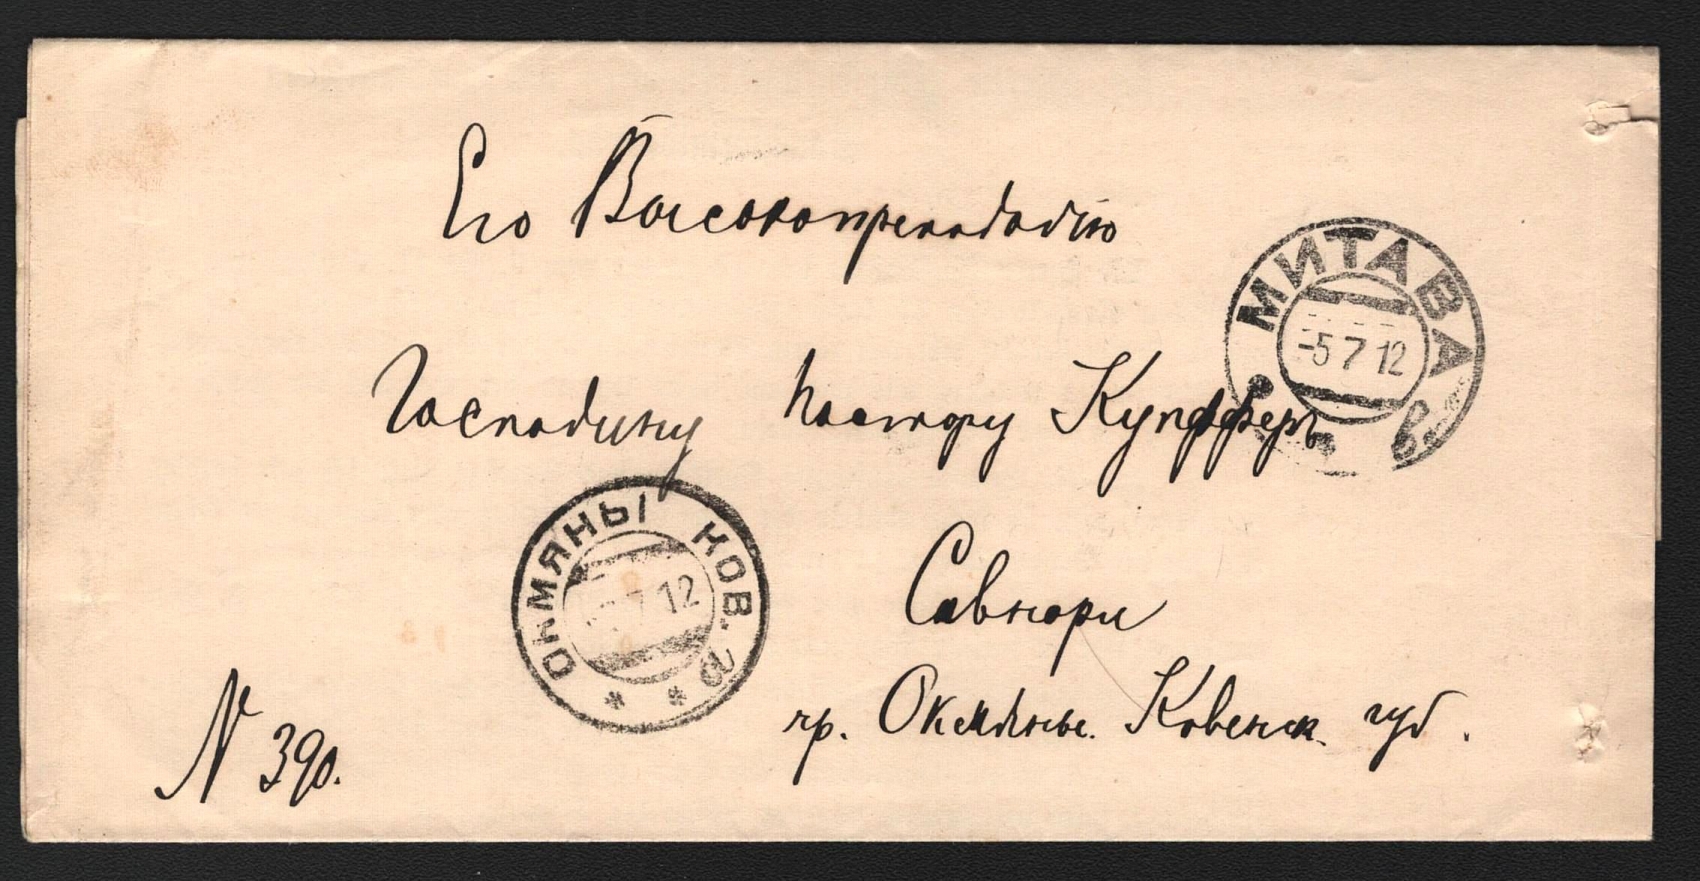 Его Высокопреподобію
МИТАВА
-5 7 12
в
Господину Пастору Купфферъ
ОКМЯНЫ КОВ. Г.
7 12
Савкори
чр. Окмяны. Ковенск. губ.
N 390.